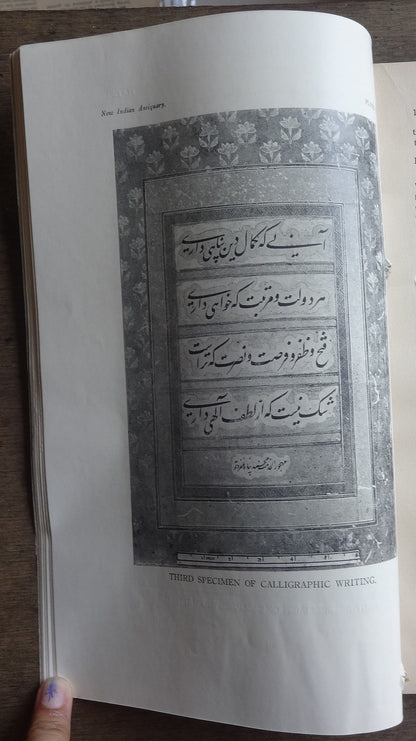 New Indian Antiquary.
آنی که کمال دین پناهی داری
هر دولت و مرتبت که خواهی داری
فتح و ظفر و فرصت و نصرت که تراست
شک نیست که از لطف آلهی داری
THIRD SPECIMEN OF CALLIGRAPHIC WRITING.